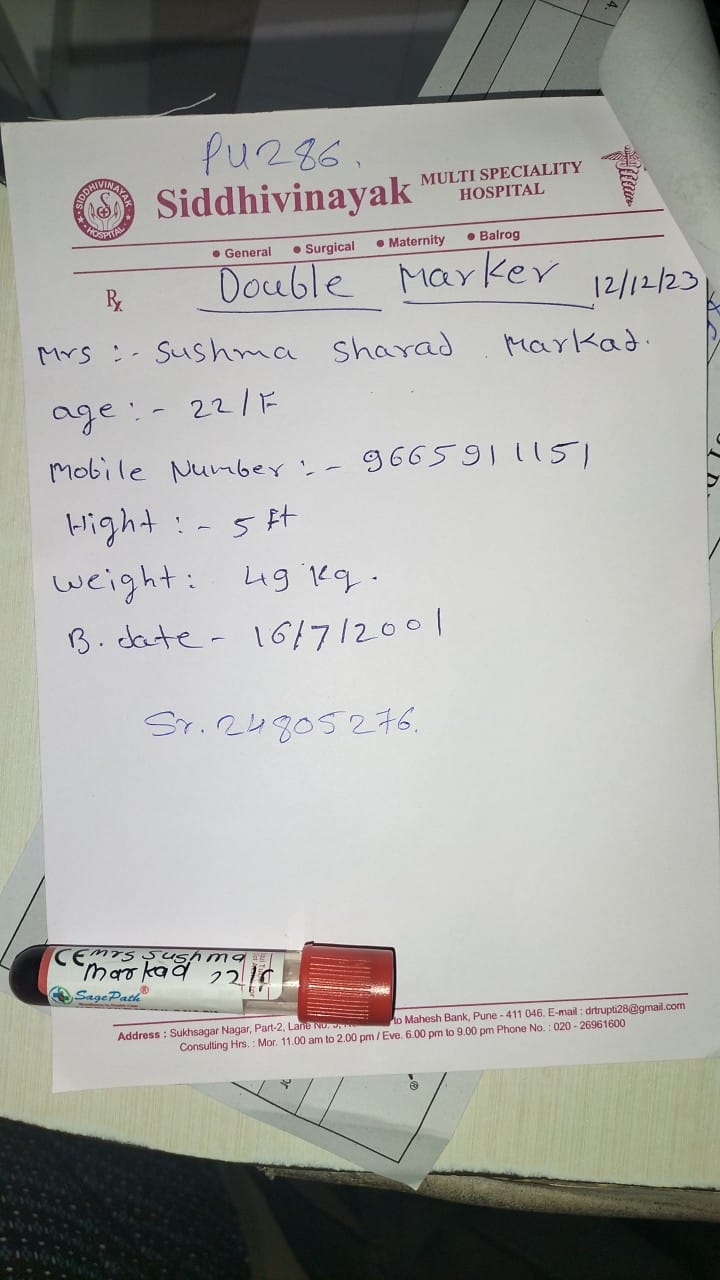 PU286.
SIDDHIVINAYAK HOSPITAL
Siddhivinayak MULTI SPECIALITY HOSPITAL
• General • Surgical • Maternity • Balrog
Rx Double Marker 12/12/23
Mrs :- Sushma Sharad Markad.
age :- 22/F
Mobile Number :- 9665911151
Hight :- 5 ft
Weight: 49 kg.
B. date - 16/7/2001
Sr. 24805276.
CE Mrs Sushma
Markad 22/F
SagePath®
Address : Sukhsagar Nagar, Part-2, Lane No. to Mahesh Bank, Pune - 411 046. E-mail : drtrupti28@gmail.com
Consulting Hrs. : Mor. 11.00 am to 2.00 pm / Eve. 6.00 pm to 9.00 pm Phone No. : 020 - 26961600